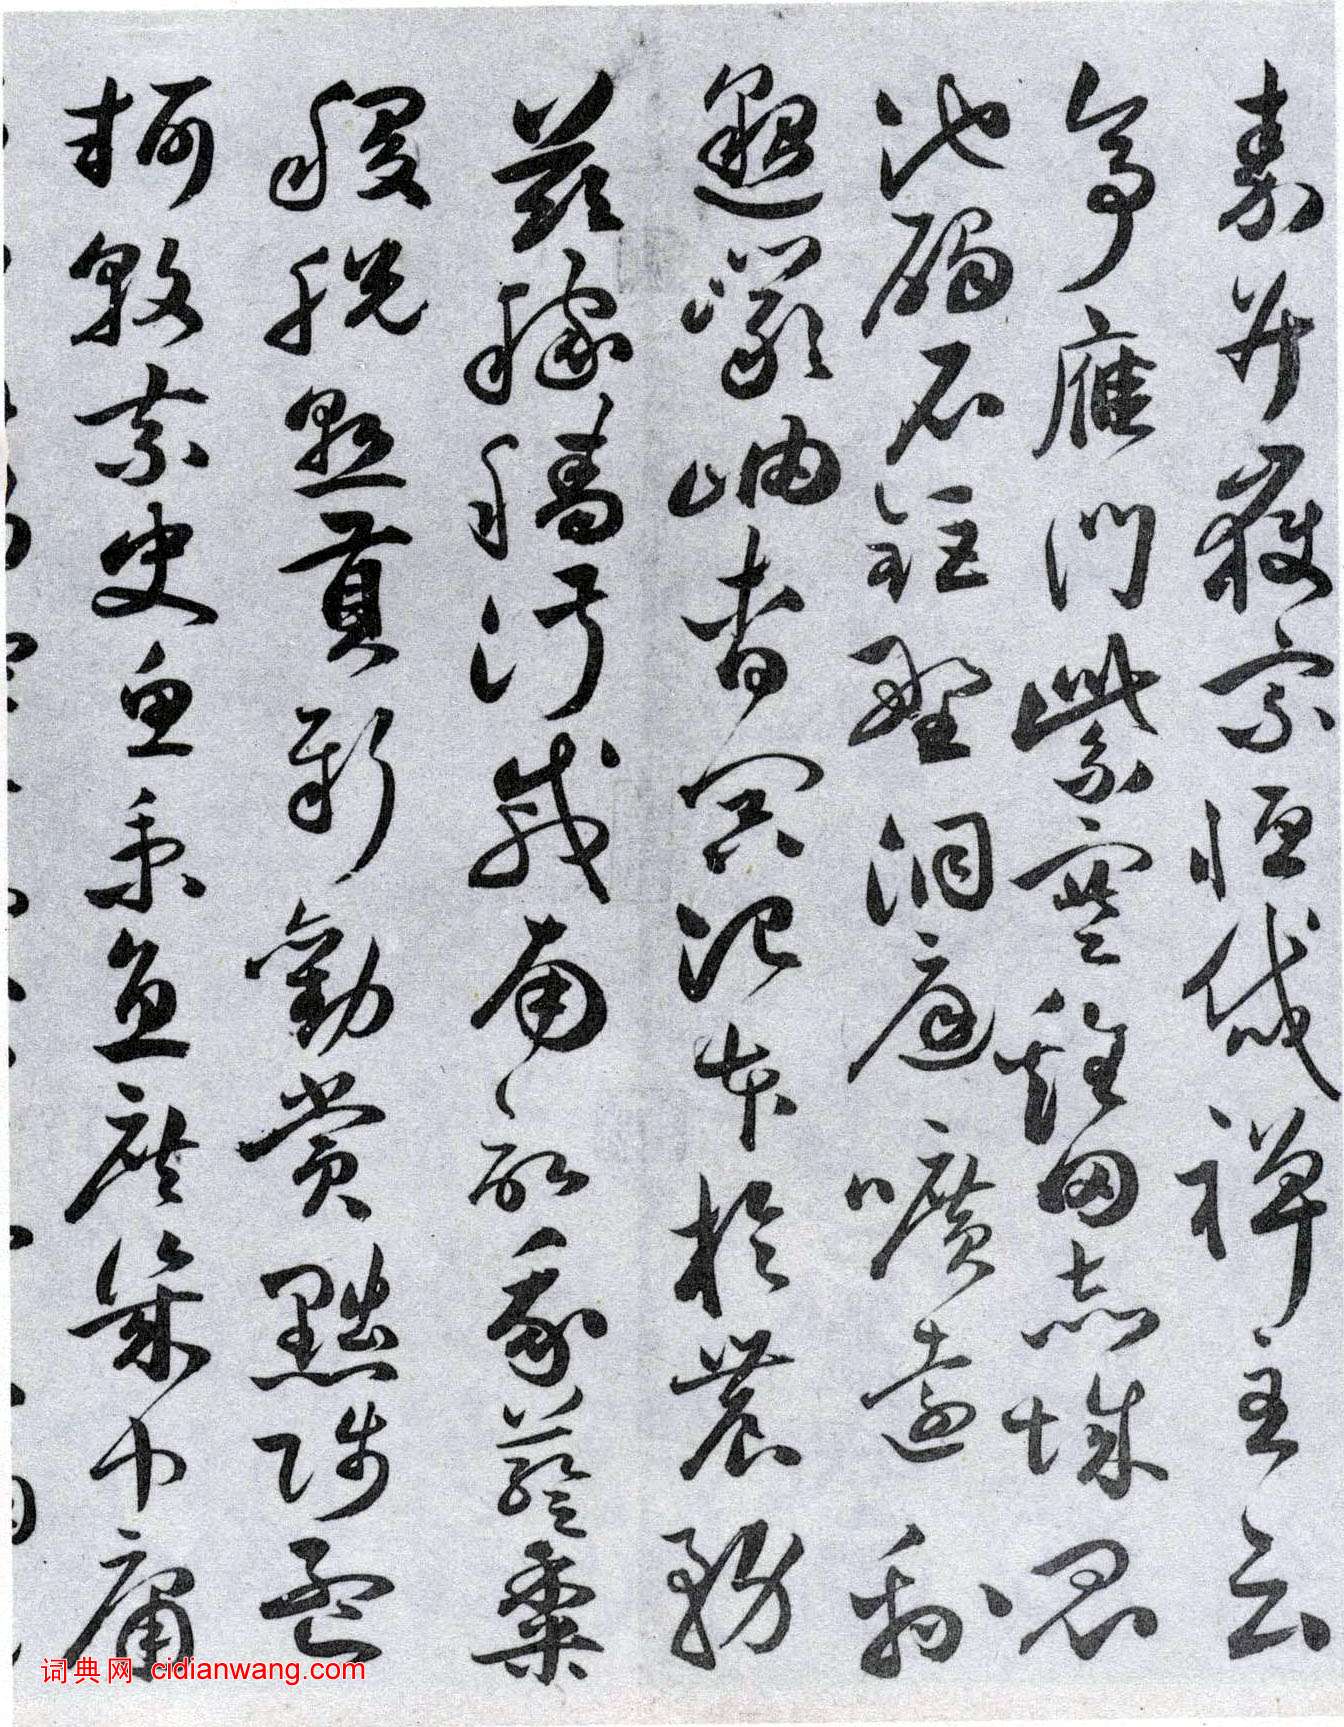 秦并嶽宗恒岱禪主云
亭雁門紫塞雞田赤城昆
池碣石鉅野洞庭曠遠綿
邈巖岫杳冥治本於農務
茲稼穡俶載南畝我藝黍
稷稅熟貢新勸賞黜陟孟
軻敦素史魚秉直庶幾中庸
词典网 cidianwang.com